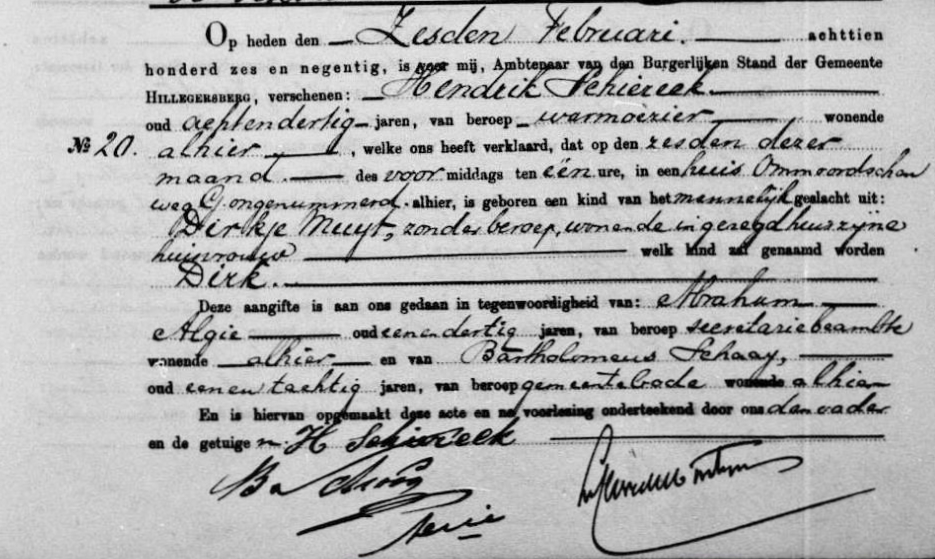 Op heden den Zesden Februari. achttien
honderd zes en negentig, is voor mij, Ambtenaar van den Burgerlijken Stand der Gemeente
HILLEGERSBERG, verschenen: Hendrik Schiereek.
oud achtendertig jaren, van beroep warmoezier wonende
№ 20. alhier, welke ons heeft verklaard, dat op den zesden dezer
maand des voormiddags ten één ure, in een huis Ommoordschen
weg G ongenummerd alhier, is geboren een kind van het mannelijk geslacht uit:
Dirkje Muyt, zonder beroep, wonende in gezegd huis zijne
huisvrouw welk kind zal genaamd worden
Dirk.
Deze aangifte is aan ons gedaan in tegenwoordigheid van: Abraham
Algie oud eenendertig jaren, van beroep secretariebeambte
wonende alhier en van Bartholomeus Schaay,
oud eenentachtig jaren, van beroep gemeentebode wonende alhier
En is hiervan opgemaakt deze acte en na voorlezing onderteekend door ons den vader
en de getuigen. H Schiereek